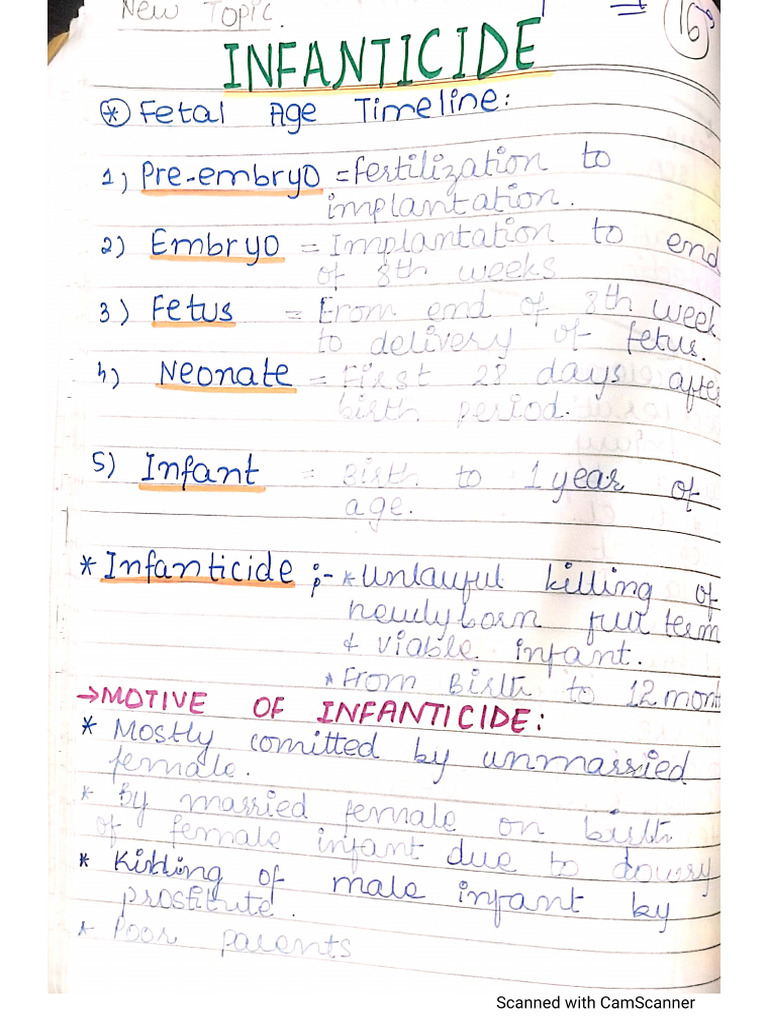 New Topic.
16
INFANTICIDE
* Fetal Age Timeline:
1) Pre-embryo = fertilization to
implantation.
2) Embryo = Implantation to end
of 8th weeks
3) Fetus = From end of 8th week
to delivery of fetus.
4) Neonate = First 28 days after
birth period.
5) Infant = Birth to 1 year of
age.
* Infanticide ;- * Unlawful killing of
newlyborn full term
& viable infant.
* From Birth to 12 mont
→ MOTIVE OF INFANTICIDE:
* Mostly comitted by unmarried
female.
* By married female on birth
of female infant due to dowry
* Killing of male infant by
prostitute.
* Poor parents
Scanned with CamScanner